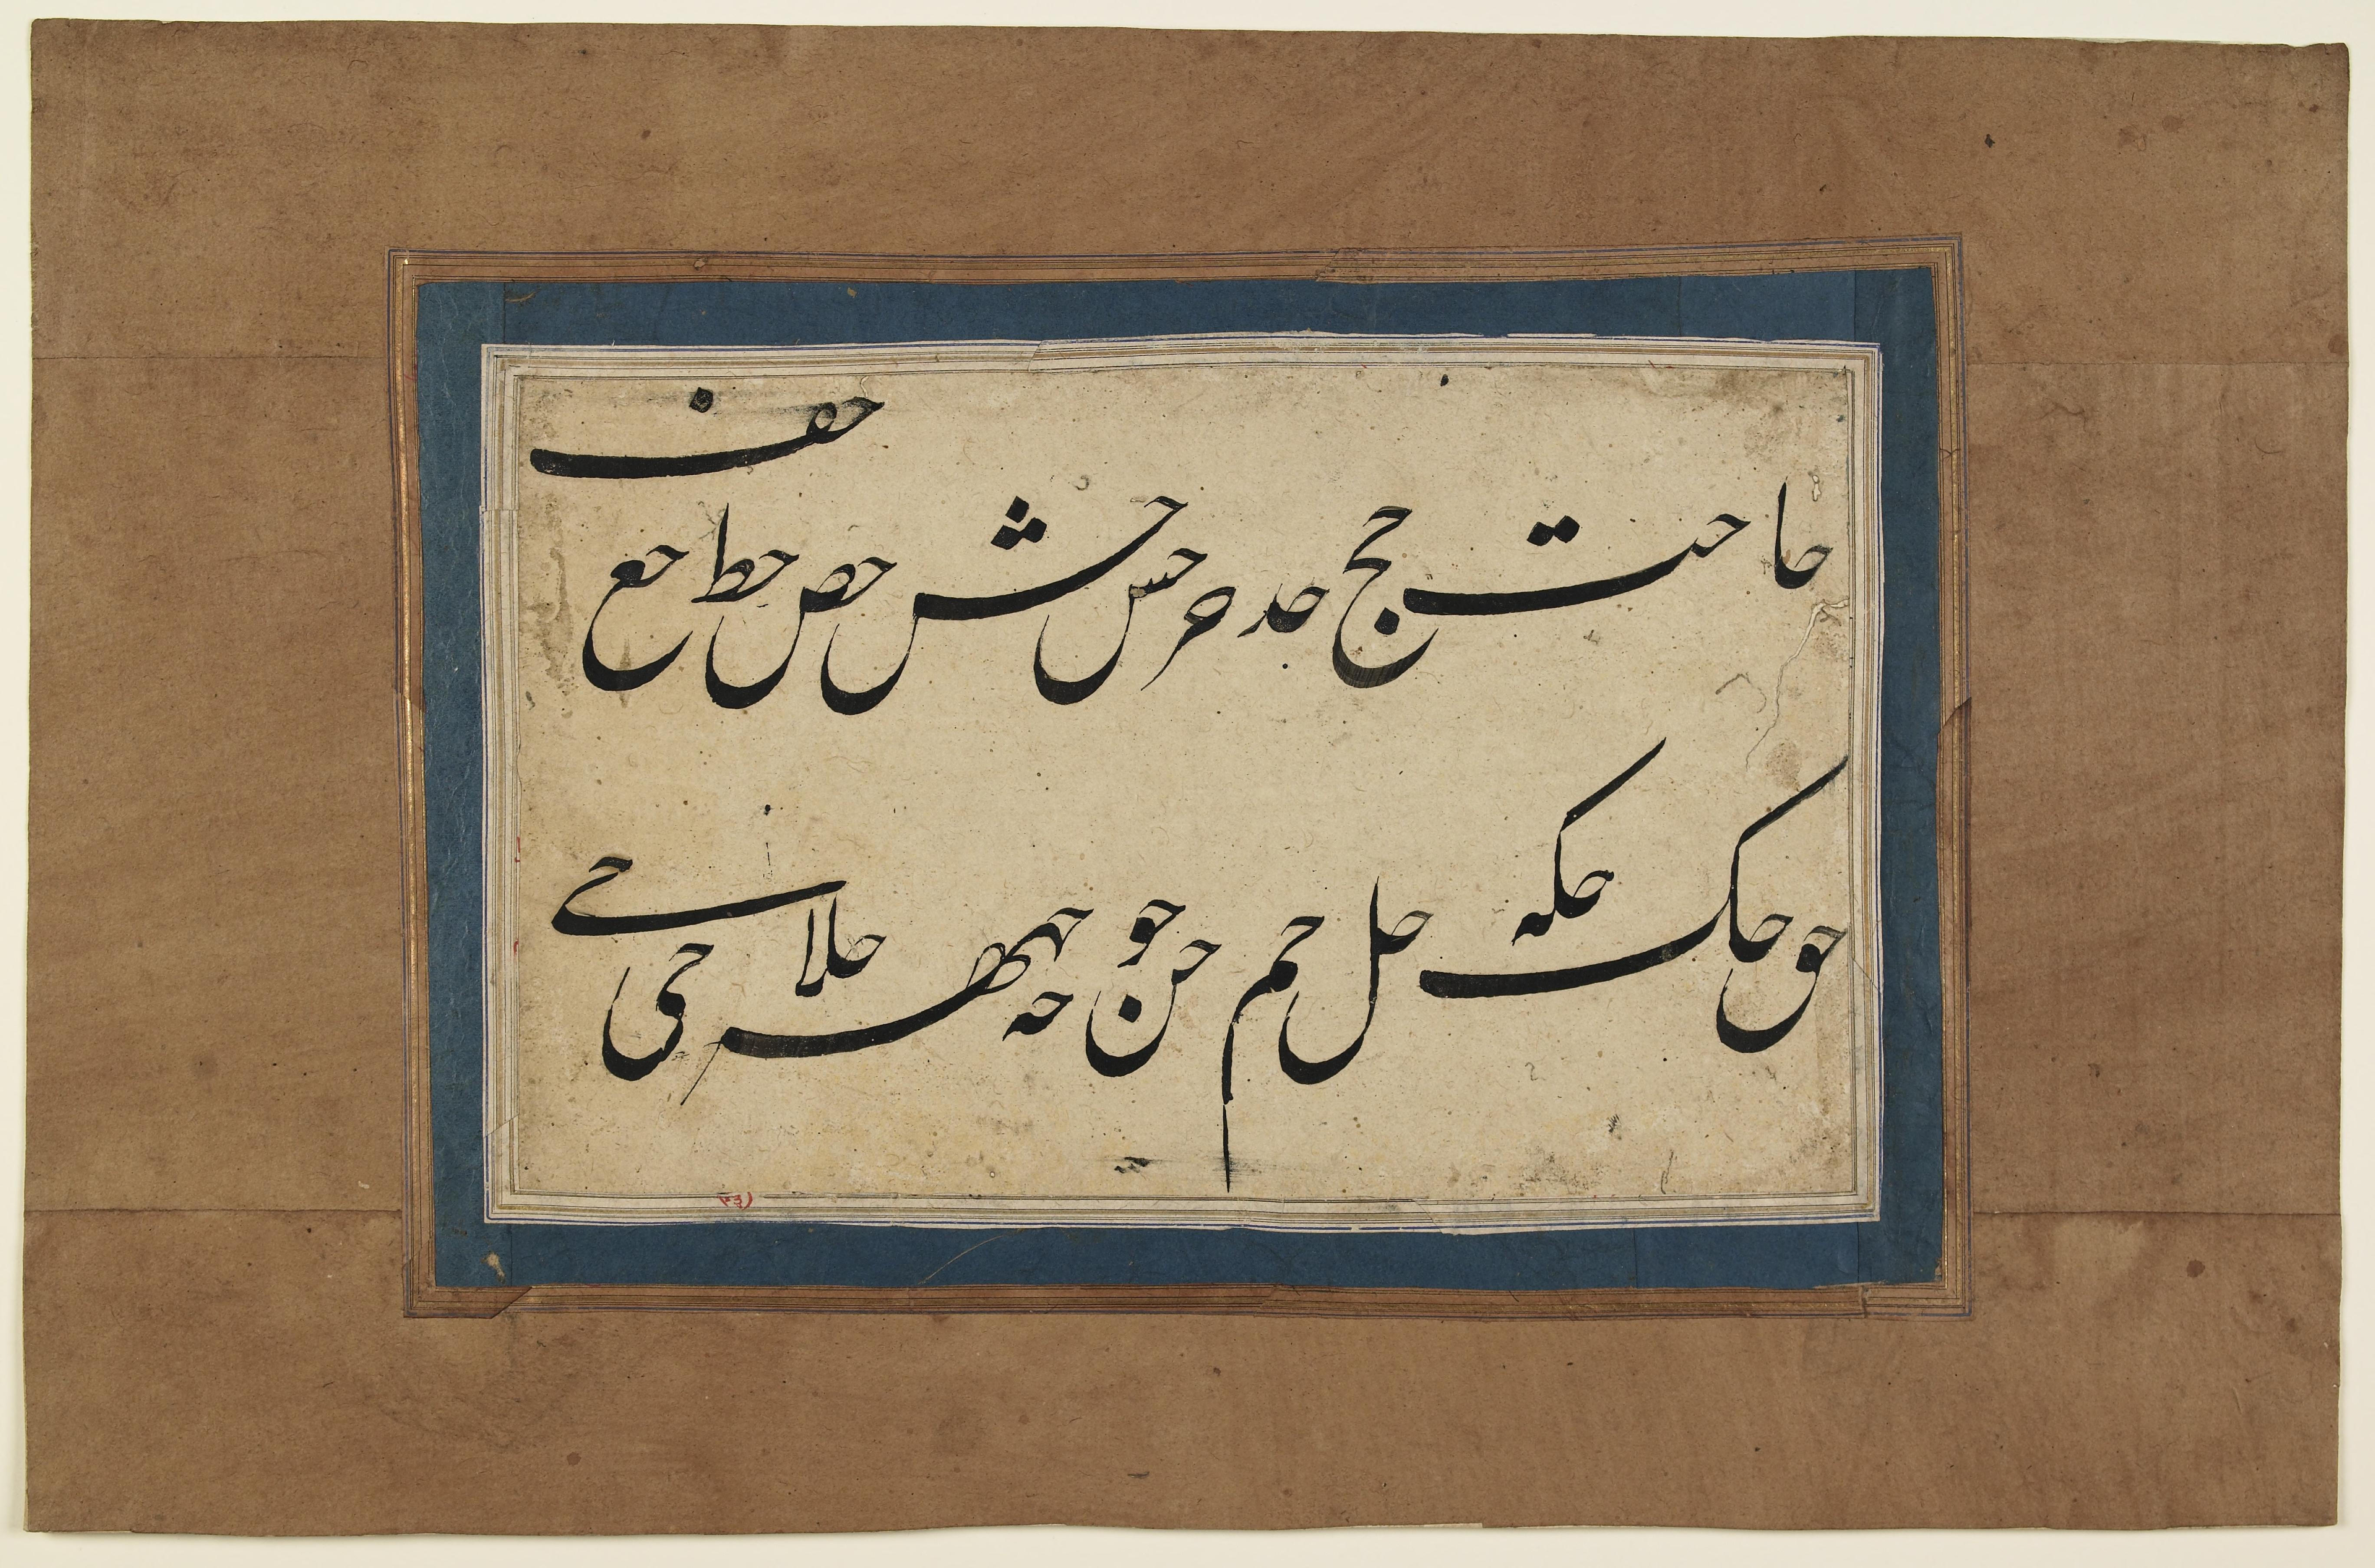 حا حت حج حد حر حس حش حص حط حع حف
حق حک حکه حل حم حن حو حه حهر حلا حی حے